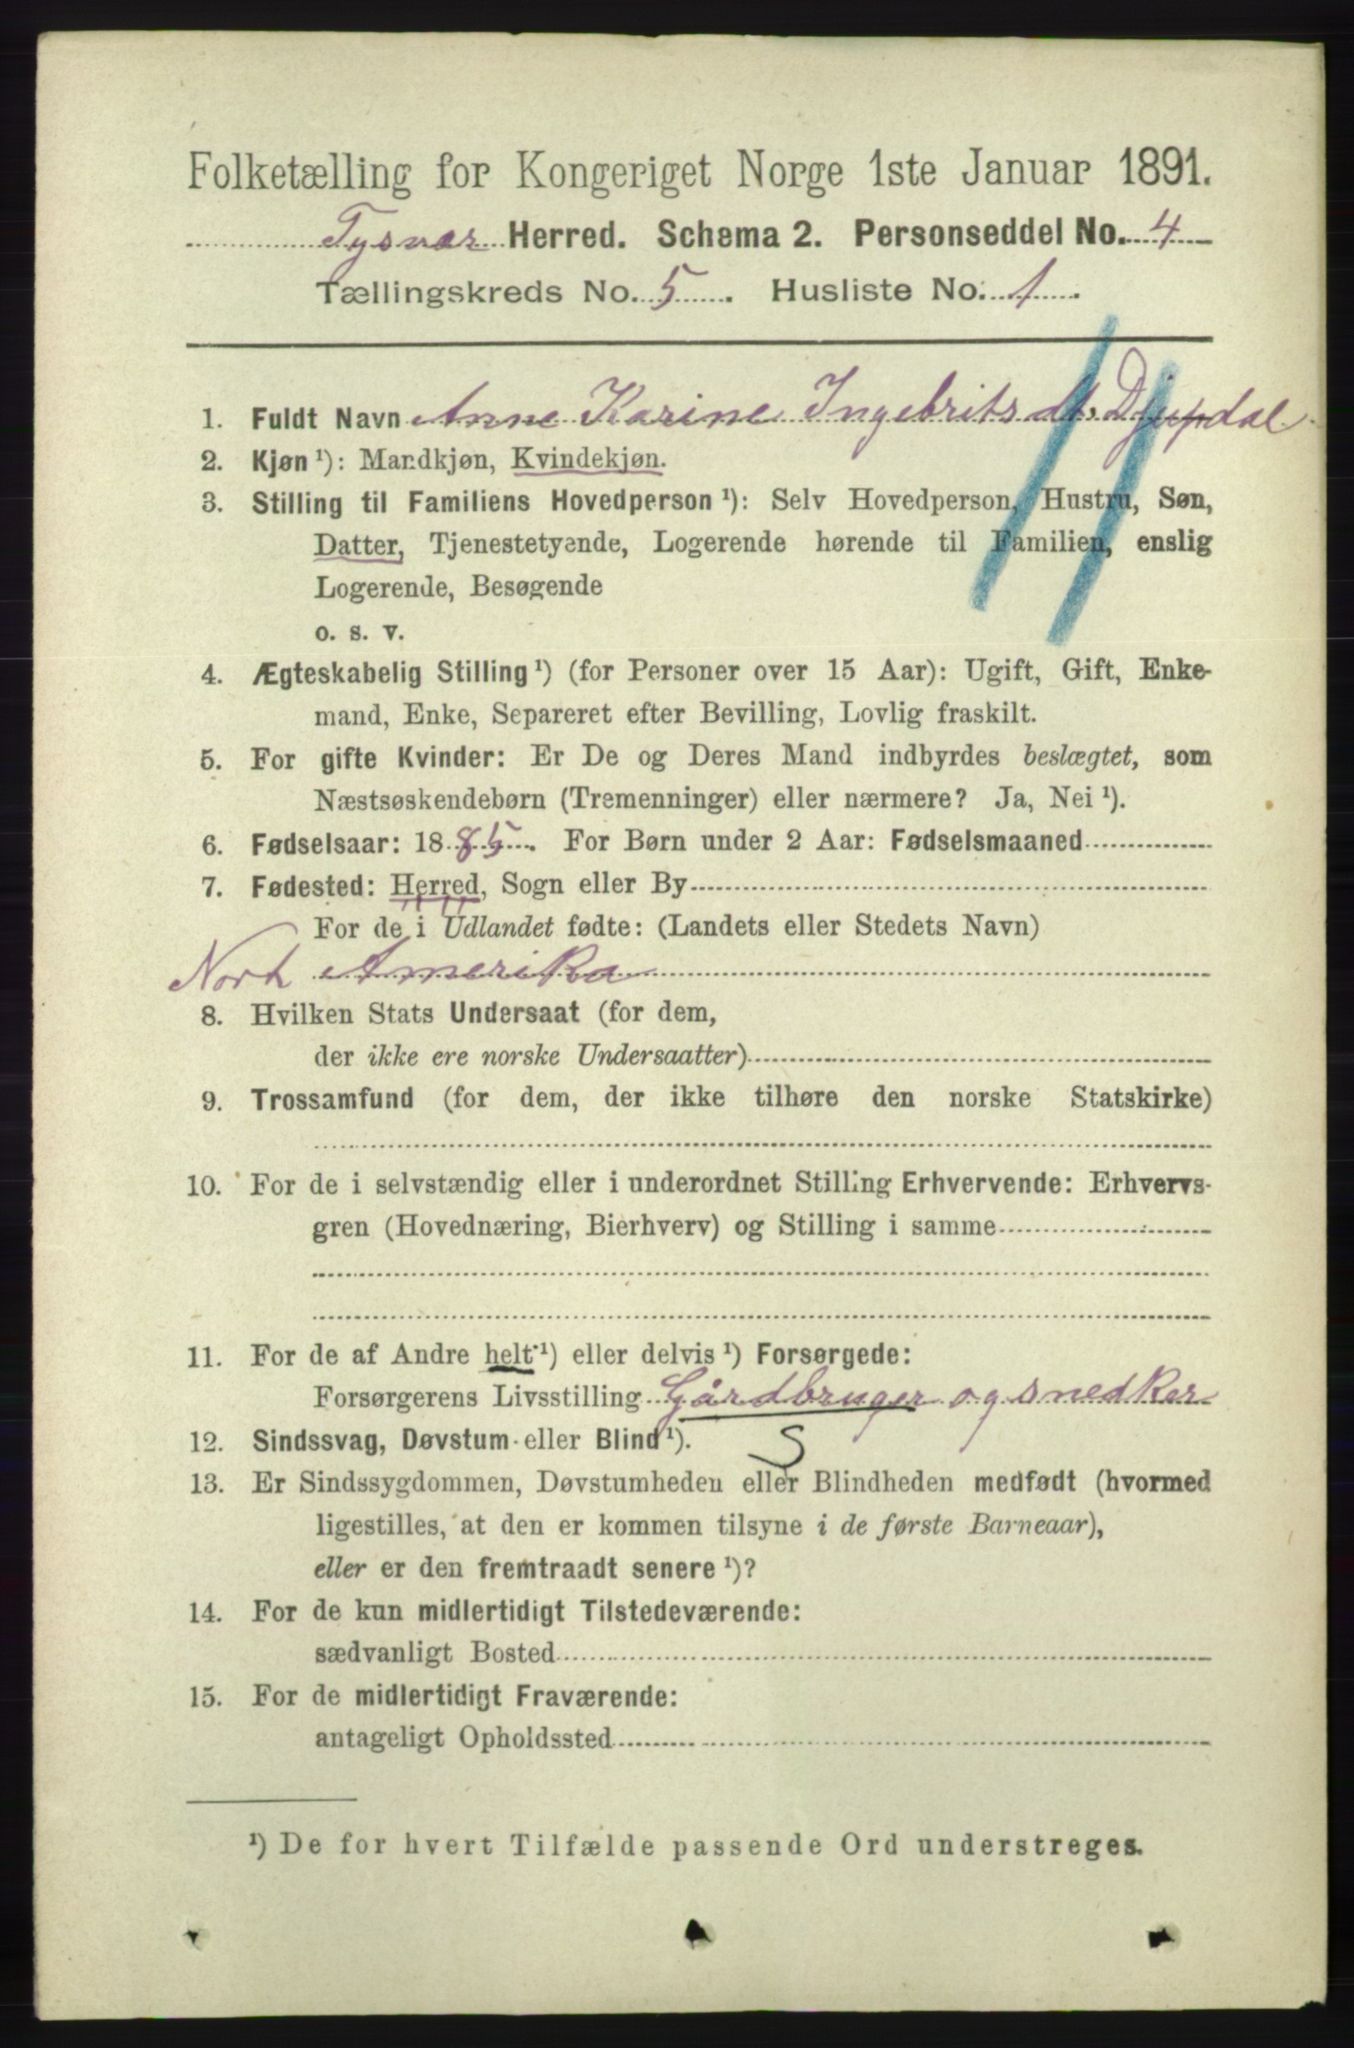 Folketælling for Kongeriget Norge 1ste Januar 1891.
Tysvær Herred. Schema 2. Personseddel No. 4
Tællingskreds No. 5. Husliste No. 1.
1. Fuldt Navn Anne Karine Ingebritsdt. Djupdal
2. Kjøn ¹): Mandkjøn, Kvindekjøn.
3. Stilling til Familiens Hovedperson ¹): Selv Hovedperson, Hustru, Søn,
Datter, Tjenestetyende, Logerende hørende til Familien, enslig
Logerende, Besøgende
o. s. v.
4. Ægteskabelig Stilling ¹) (for Personer over 15 Aar): Ugift, Gift, Enke-
mand, Enke, Separeret efter Bevilling, Lovlig fraskilt.
5. For gifte Kvinder: Er De og Deres Mand indbyrdes beslægtet, som
Næstsøskendebørn (Tremenninger) eller nærmere? Ja, Nei ¹).
6. Fødselsaar: 1885. For Børn under 2 Aar: Fødselsmaaned
7. Fødested: Herred, Sogn eller By
For de i Udlandet fødte: (Landets eller Stedets Navn)
Nort Amerika
8. Hvilken Stats Undersaat (for dem,
der ikke ere norske Undersaatter)
9. Trossamfund (for dem, der ikke tilhøre den norske Statskirke)
10. For de i selvstændig eller i underordnet Stilling Erhvervende: Erhvervs-
gren (Hovednæring, Bierhverv) og Stilling i samme
11. For de af Andre helt ¹) eller delvis ¹) Forsørgede:
Forsørgerens Livsstilling Gårdbruger og snedker
S
12. Sindssvag, Døvstum eller Blind ¹).
13. Er Sindssygdommen, Døvstumheden eller Blindheden medfødt (hvormed
ligestilles, at den er kommen tilsyne i de første Barneaar),
eller er den fremtraadt senere ¹)?
14. For de kun midlertidigt Tilstedeværende:
sædvanligt Bosted
15. For de midlertidigt Fraværende:
antageligt Opholdssted
¹) De for hvert Tilfælde passende Ord understreges.